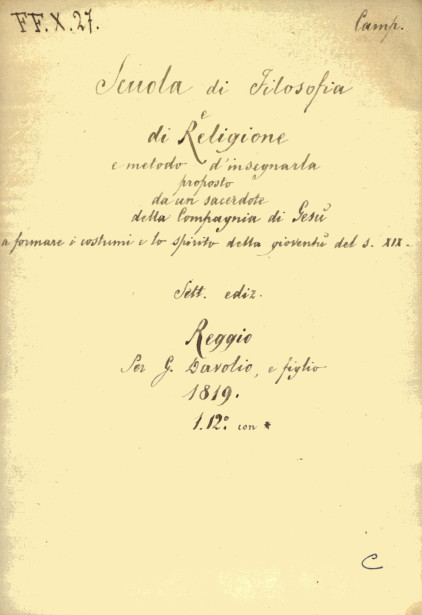 FF.X.27.
Camp.
Scuola di Filosofia
e
di Religione
e metodo d'insegnarla
proposto
da un sacerdote
della Compagnia di Gesù
a formare i costumi e lo spirito della gioventù del s. XIX.
Sett. ediz.
Reggio
Per G. Davolio, e figlio
1819.
1.12.° con *
C